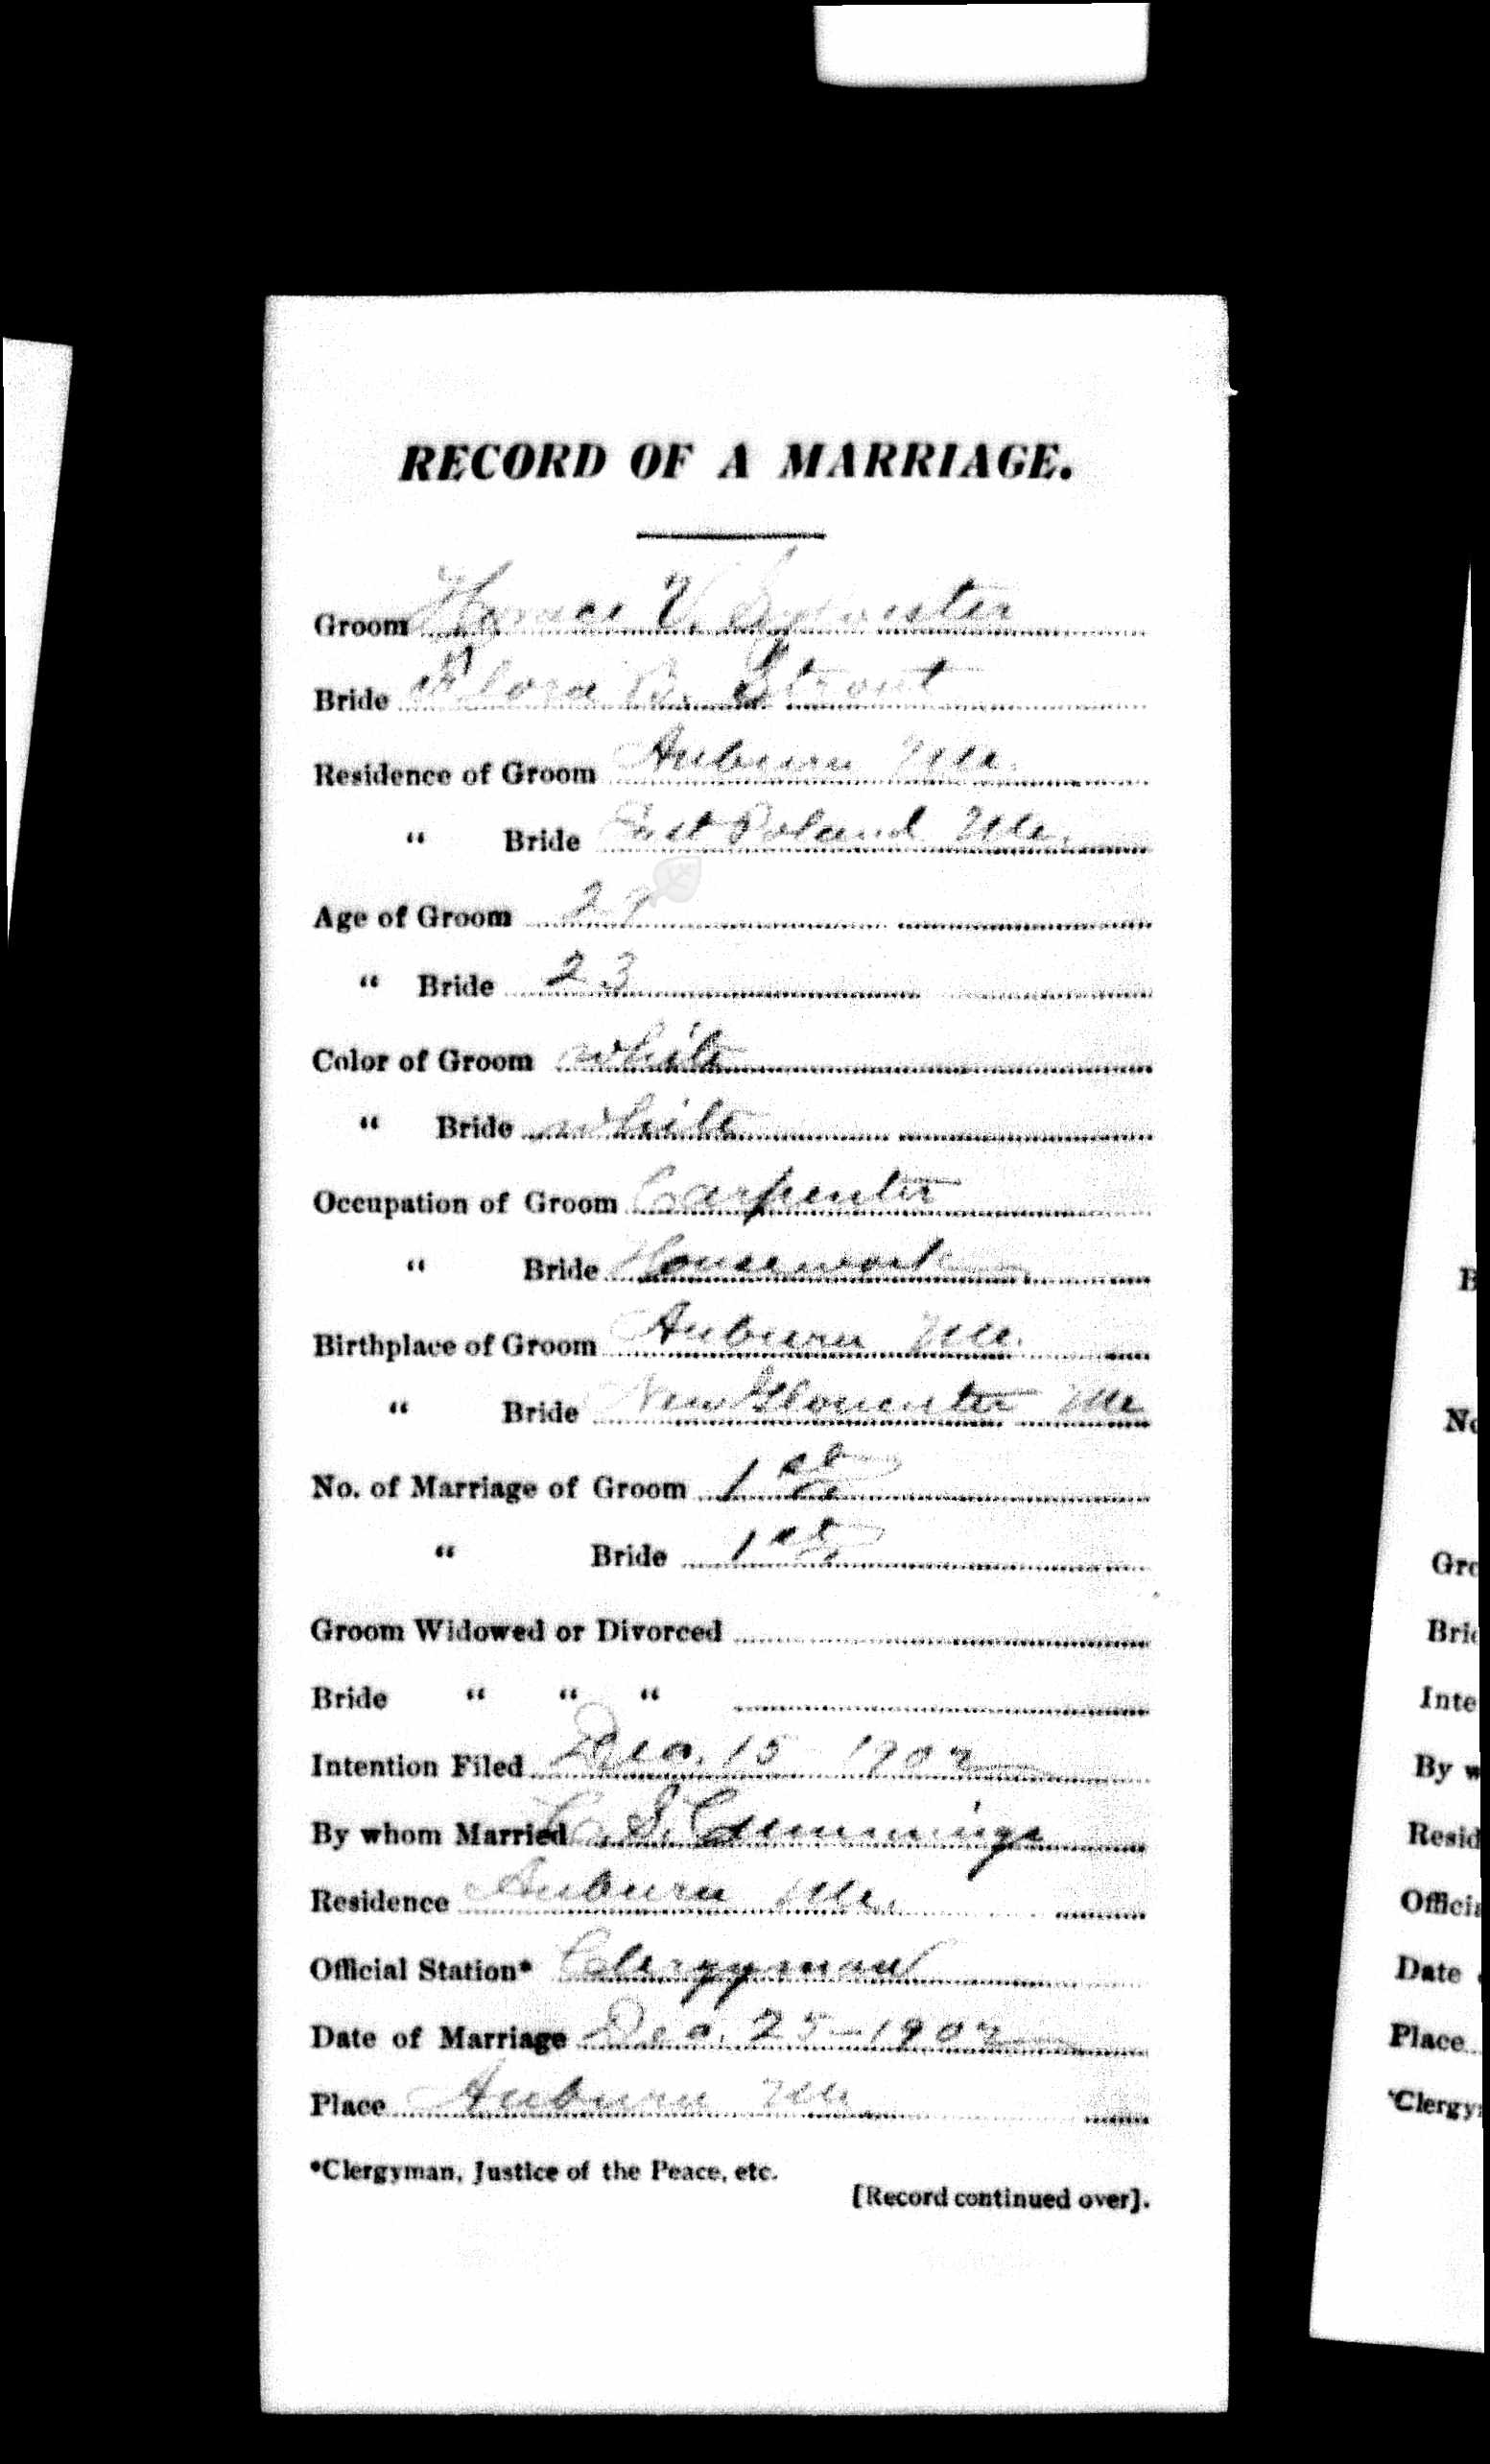 RECORD OF A MARRIAGE.
Groom Horace V. Sylvester
Bride Flora B. Strout
Residence of Groom Auburn Me.
" Bride East Poland Me.
Age of Groom 27
" Bride 23
Color of Groom white
" Bride white
Occupation of Groom Carpenter
" Bride Housework
Birthplace of Groom Auburn Me.
" Bride New Gloucester Me
No. of Marriage of Groom 1st
" Bride 1st
Groom Widowed or Divorced
Bride " " "
Intention Filed Dec. 15 1902
By whom Married C. S. Cummings
Residence Auburn Me.
Official Station* Clergyman
Date of Marriage Dec. 25-1902
Place Auburn Me.
*Clergyman, Justice of the Peace, etc.
[Record continued over].
B
No
Gro
Brid
Inte
By w
Resid
Officia
Date
Place
*Clergy